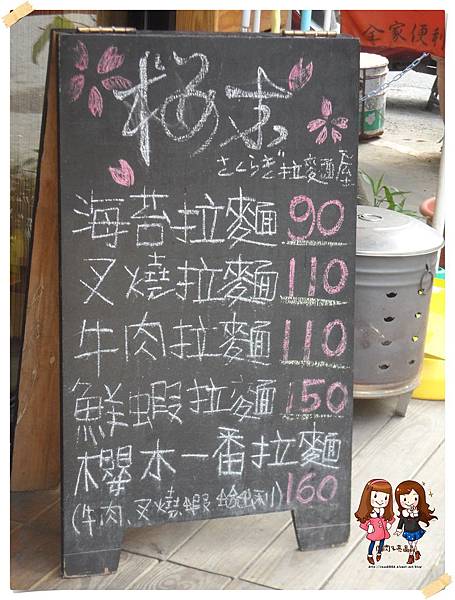 全家便利
桜木
さくらぎ拉麵屋
海苔拉麵 90
叉燒拉麵 110
牛肉拉麵 110
鮮蝦拉麵 150
櫻木一番拉麵
(牛肉、叉燒、蝦、蛤蜊) 160